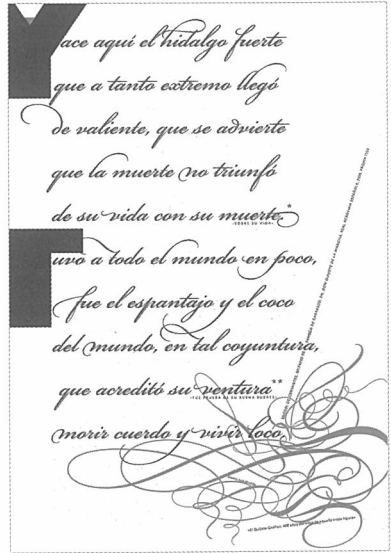 Yace aquí el hidalgo fuerte
que a tanto extremo llegó
de valiente, que se advierte
que la muerte no triunfó
de su vida con su muerte.*
*SOBRE SU VIDA.
Tuvo a todo el mundo en poco,
fue el espantajo y el coco
del mundo, en tal coyuntura,
que acreditó su ventura**
*FUE PRUEBA DE SU BUENA SUERTE
morir cuerdo y vivir loco.